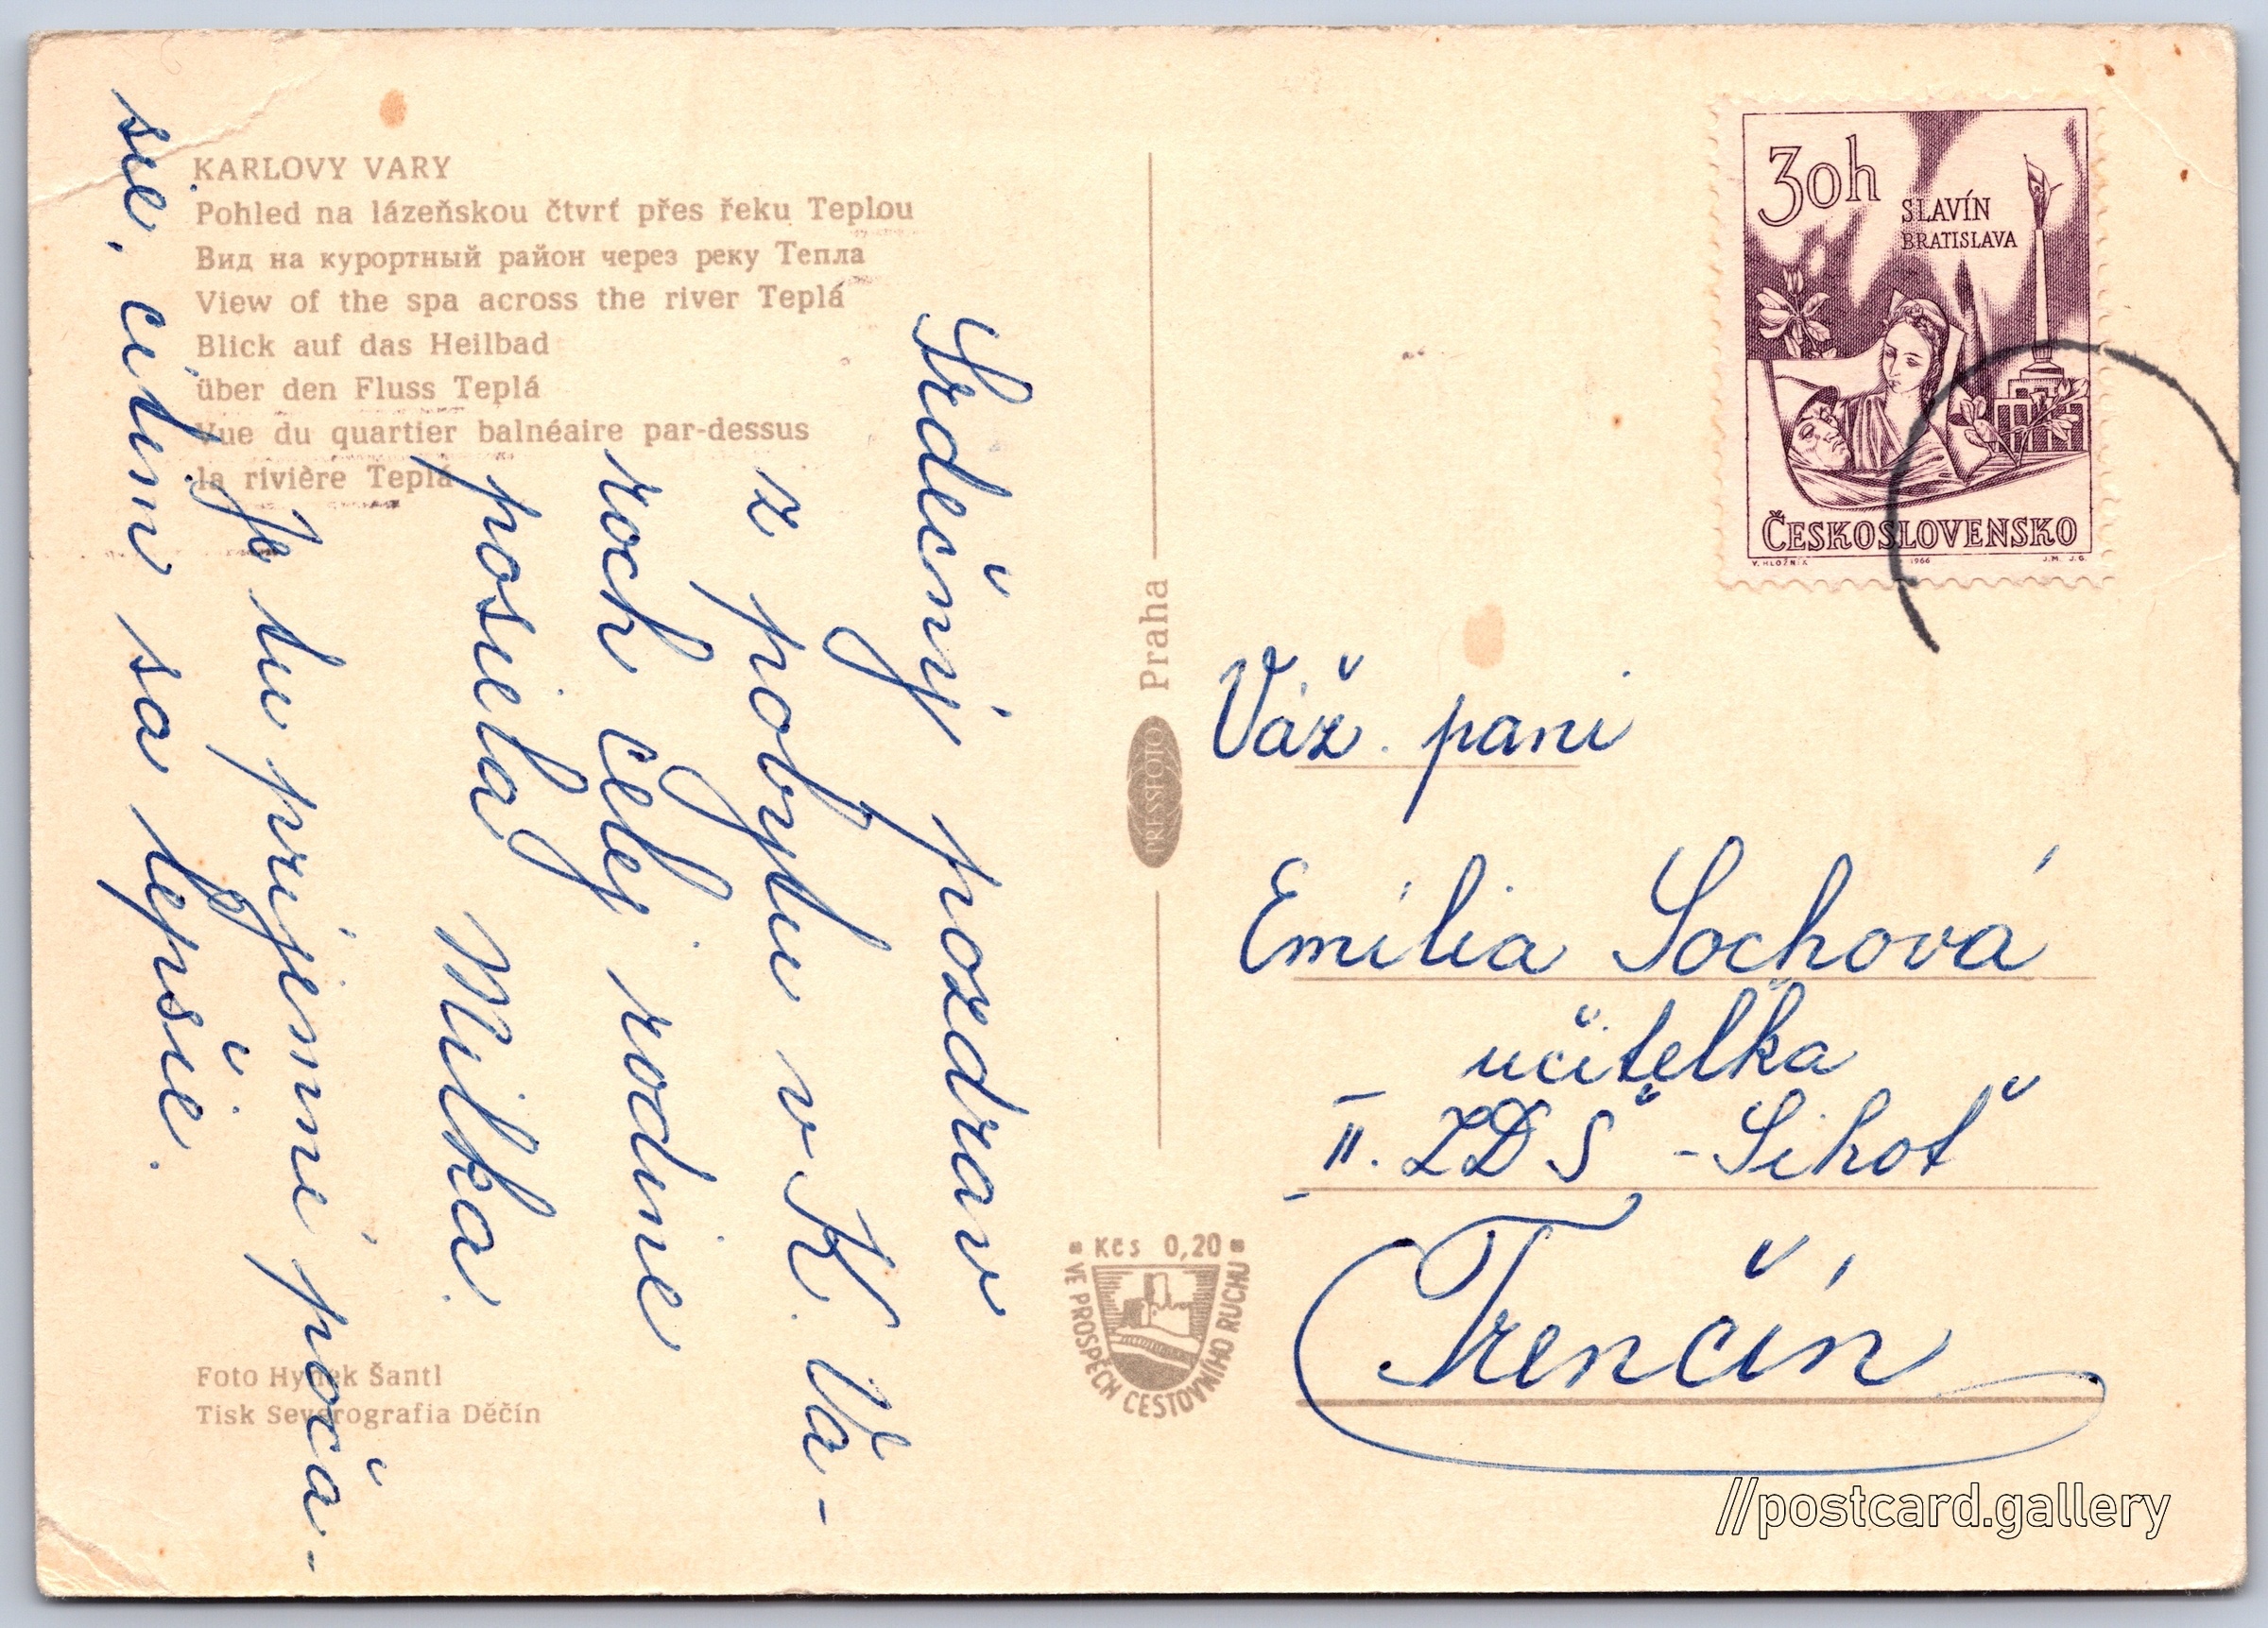 KARLOVY VARY
Pohled na lázeňskou čtvrť přes řeku Teplou
Вид на курортный район через реку Тепла
View of the spa across the river Teplá
Blick auf das Heilbad
über den Fluss Teplá
Vue du quartier balnéaire par-dessus
la rivière Teplá
Srdečný pozdrav
z pobytu v K. Va-
roch celej rodine
posiela Milka.
Je tu príjemné poča-
sie, cítim sa lepšie.
Foto Hynek Šantl
Tisk Severografia Děčín
PRESSFOTO Praha
Kčs 0,20
VE PROSPĚCH CESTOVNÍHO RUCHU
30h
SLAVÍN
BRATISLAVA
ČESKOSLOVENSKO
V. HLOŽNÍK 1966 J.M. J.G.
Váž. pani
Emília Sochová
učiteľka
II. ZDŠ - Sihoť
Trenčín
//postcard.gallery